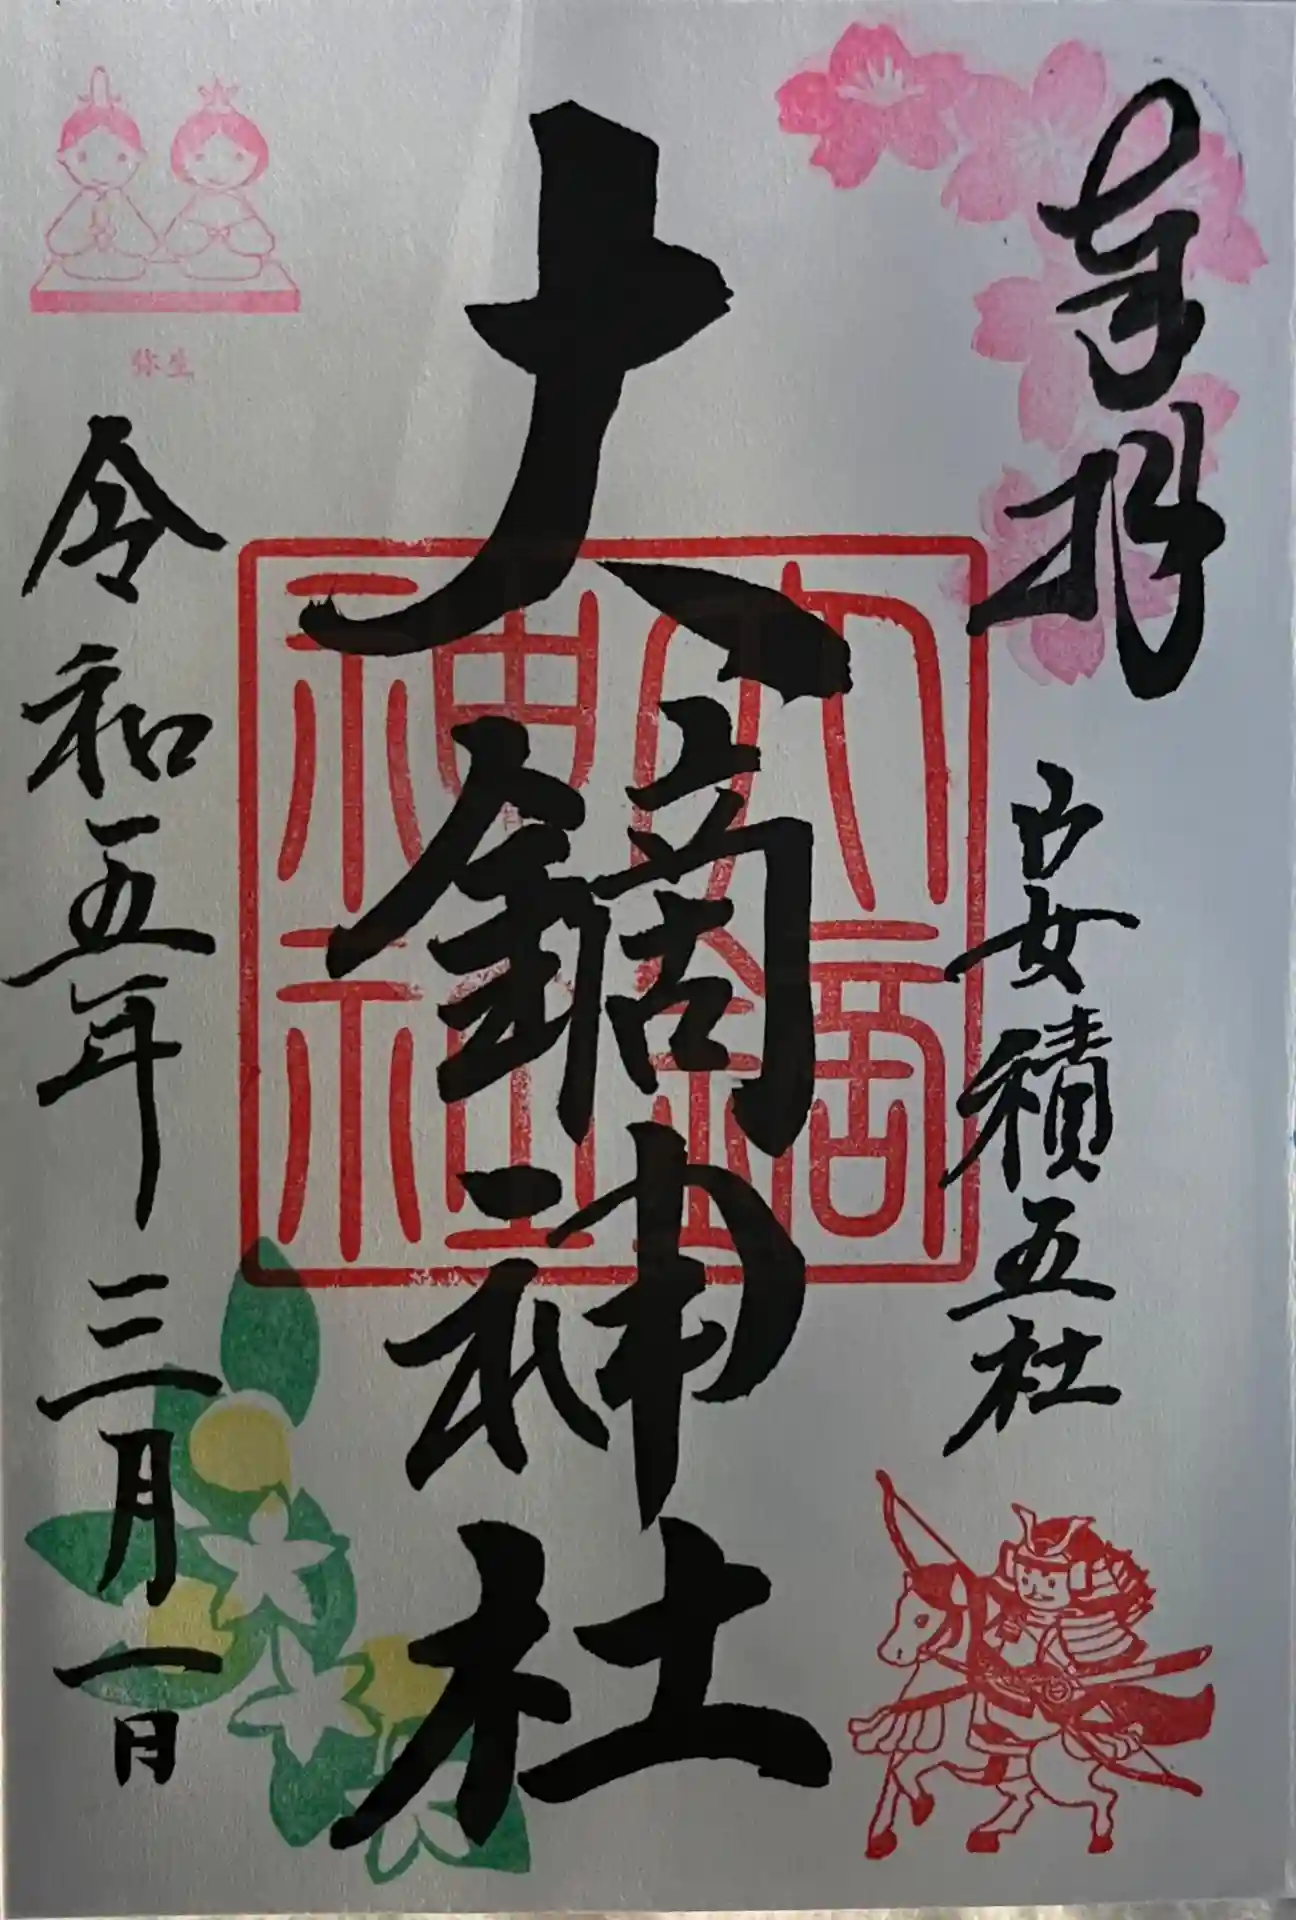 奉拝
安積五社
大鏑神社
大鏑神社
弥生
令和五年三月一日